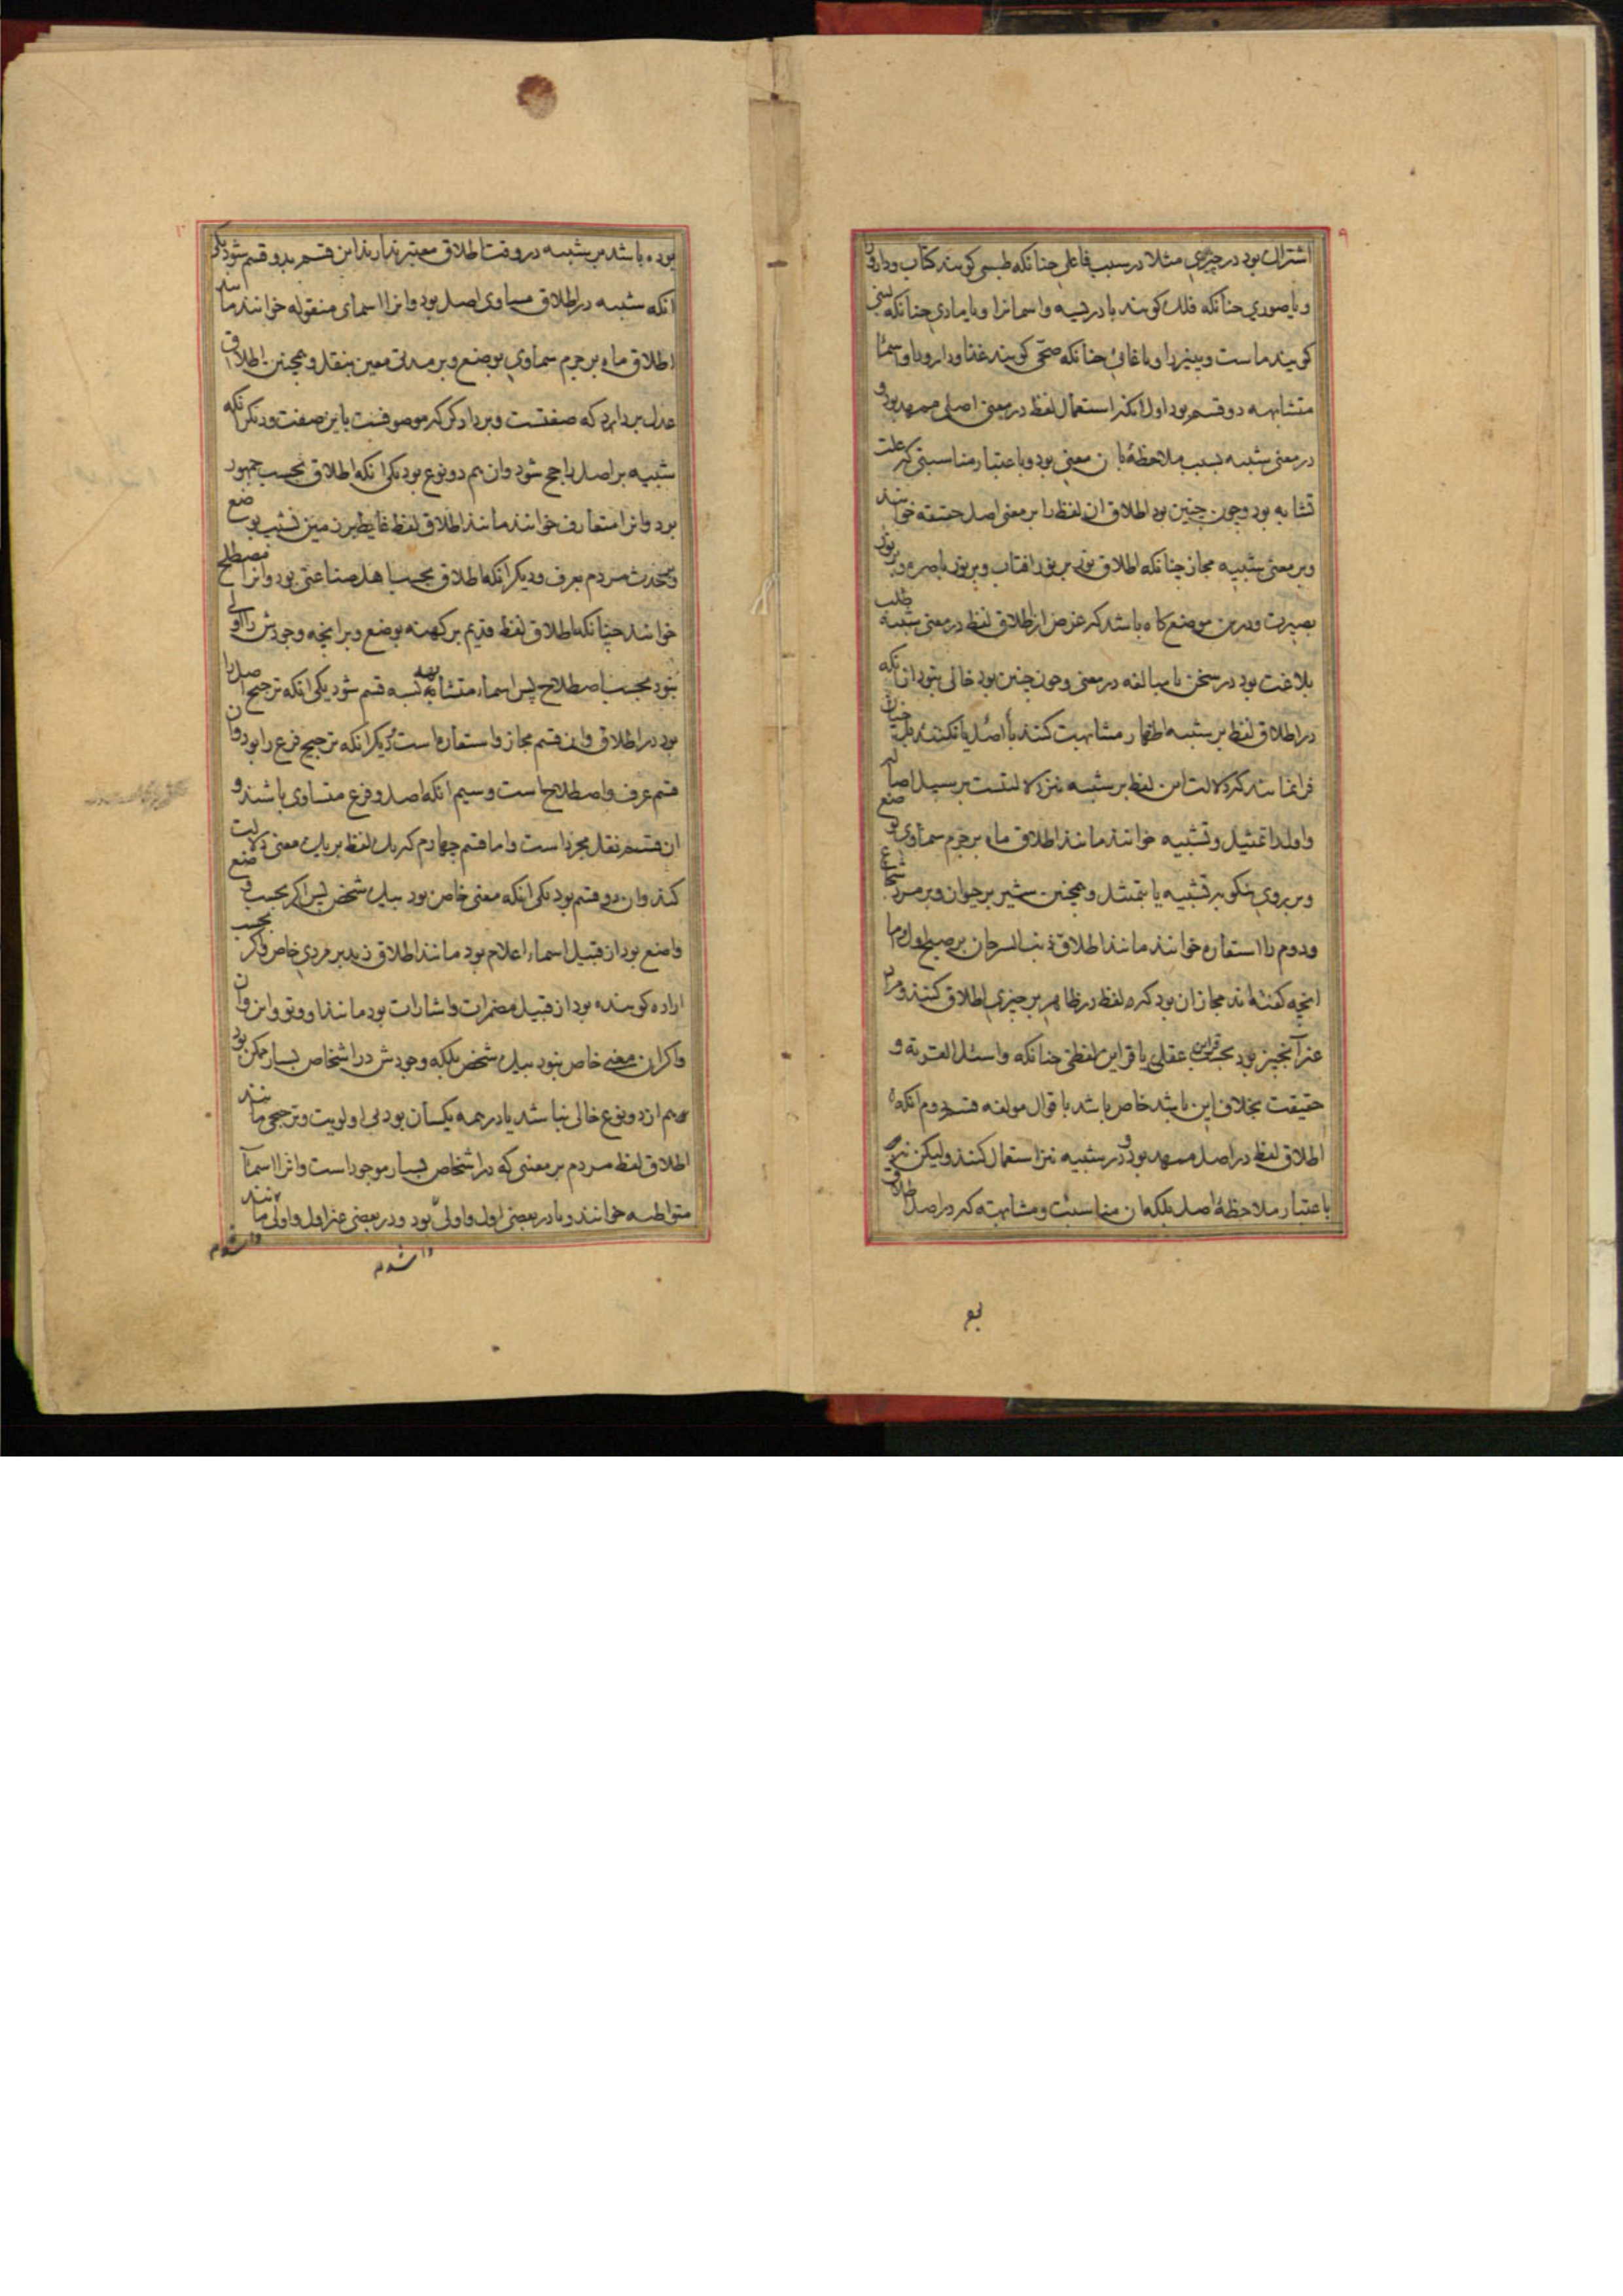 ۹
اشتراک بود در چیزی مثلا در سبب فاعلی جنانکه طبیبی کویند کتاب و دارو
و یا صوری جنانکه فلک کویند بادریسه و اسمانرا و یا مادی جنانکه
کویند ماست و پنیر را و یا غائی جنانکه صحّی کویند غذا و دارو را و اسماء
متشابهه دو قسم بود اول انکه استعمال لفظ در معنی اصلی ممهد بود و
در معنی شبیه بسبب ملاحظهٔ ان معنی بود و باعتبار مناسبتی که علت
تشابه بود و چون چنین بود اطلاق ان لفظ را بر معنی اصل حقیقه خوانند
و بر معنی شبیه مجاز چنانکه اطلاق نور بر نور افتاب و بر نور باصره و بر نور
بصیرت و درین موضع کاه باشد که غرض از اطلاق لفظ در معنی شبیه طلب
بلاغت بود در سخن یا مبالغه در معنی و جون چنین بود خالی نبود از انکه
در اطلاق لفظ بر شبیه اظهار مشابهت کنند با اصل یا نکنند بلکه چنان
فرا نمایند که دلالت این لفظ بر شبیه نیز دلالتست بر سبیل اصالت
و اول را تمثیل و تشبیه خوانند مانند اطلاق ماه بر جرم سماوی بوضع
و بر روی نیکو بر تشبیه یا بتمثیل و همچنین شیر بر حیوان و بر مرد شجاع
و دوم را استعاره خوانند مانند اطلاق ذنب السرحان بر صبح اول و اما
انچه کفته اند مجاز ان بود که لفظ در ظاهر بر چیزی اطلاق کنند و مراد
غیر آنچیز بود بحسب قراین عقلی یا قراین لفظی جنانکه واسئل القریة و
حقیقت بخلاف این باشد خاص باشد باقوال مولفه قسم دوم انکه
اطلاق لفظ در اصل ممهد بود و در شبیه نیز استعمال کنند ولیکن نه
باعتبار ملاحظهٔ اصل بلکه ان مناسبت و مشابهت که در اصل اطلاق
بو
۱۰
بوده باشد بر شبیه در وقت اطلاق معتبر ندارند این قسم بدو قسم شود یکی
انکه شبیه در اطلاق مساوی اصل بود وانرا اسمای منقوله خوانند مانند
اطلاق ماه بر جرم سماوی بوضع و بر مدتی معین بنقل و همچنین اطلاق
عدل بر داد که صفتست و بر دادکر که موصوفست باین صفت و دیکر انکه
شبیه بر اصل راجح شود وان هم دو نوع بود یکی انکه اطلاق بحسب جمهور
بود وانرا متعارف خوانند مانند اطلاق لفظ غایط بر زمین نشیب بوضع
و بر حدث مردم بعرف و دیکر انکه اطلاق بحسب اهل صناعتی بود وانرا مصطلح
خوانند چنانکه اطلاق لفظ قدیم بر کهنه بوضع و بر انچه وجودش را اولی
نبود بحسب اصطلاح پس اسماء متشابهه بسه قسم شود یکی انکه ترجیح اصل را
بود در اطلاق وان قسم مجاز و استعاره است دیکر انکه ترجیح فرع را بود وان
قسم عرف و اصطلاح است و سیم انکه اصل و فرع متساوی باشند و
ان قسم نقل مجرد است و اما قسم چهارم که یک لفظ بر یک معنی دلالت
کند وان دو قسم بود یکی انکه معنی خاص بود بیک شخص پس اکر بحسب وضع
واضع بود از قبیل اسماء اعلام بود مانند اطلاق زید بر مردی خاص و اکر بحسب
اراده کوینده بود از قبیل مضمرات و اشارات بود مانند او و تو و این وان
و اکر ان معنی خاص نبود بیک شخص بلکه وجودش در اشخاص بسیار ممکن بود
هم از دو نوع خالی نباشد یا در همه یکسان بود بی اولویت و ترجیحی مانند
اطلاق لفظ مردم بر معنی که در اشخاص بسیار موجود است وانرا اسماء
متواطیه خوانند و یا در بعضی اول و اولی بود و در بعضی غیر اول و اولی مانند